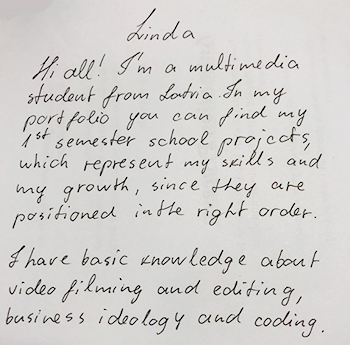 Linda
Hi all! I'm a multimedia
student from Latvia. In my
portfolio you can find my
1st semester school projects,
which represent my skills and
my growth, since they are
positioned in the right order.
I have basic knowledge about
video filming and editing,
business ideology and coding.